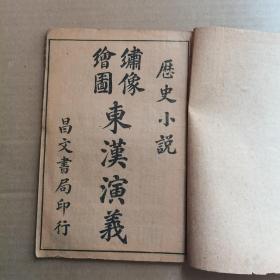 歷史小說
繡像
繪圖
東漢演義
昌文書局印行